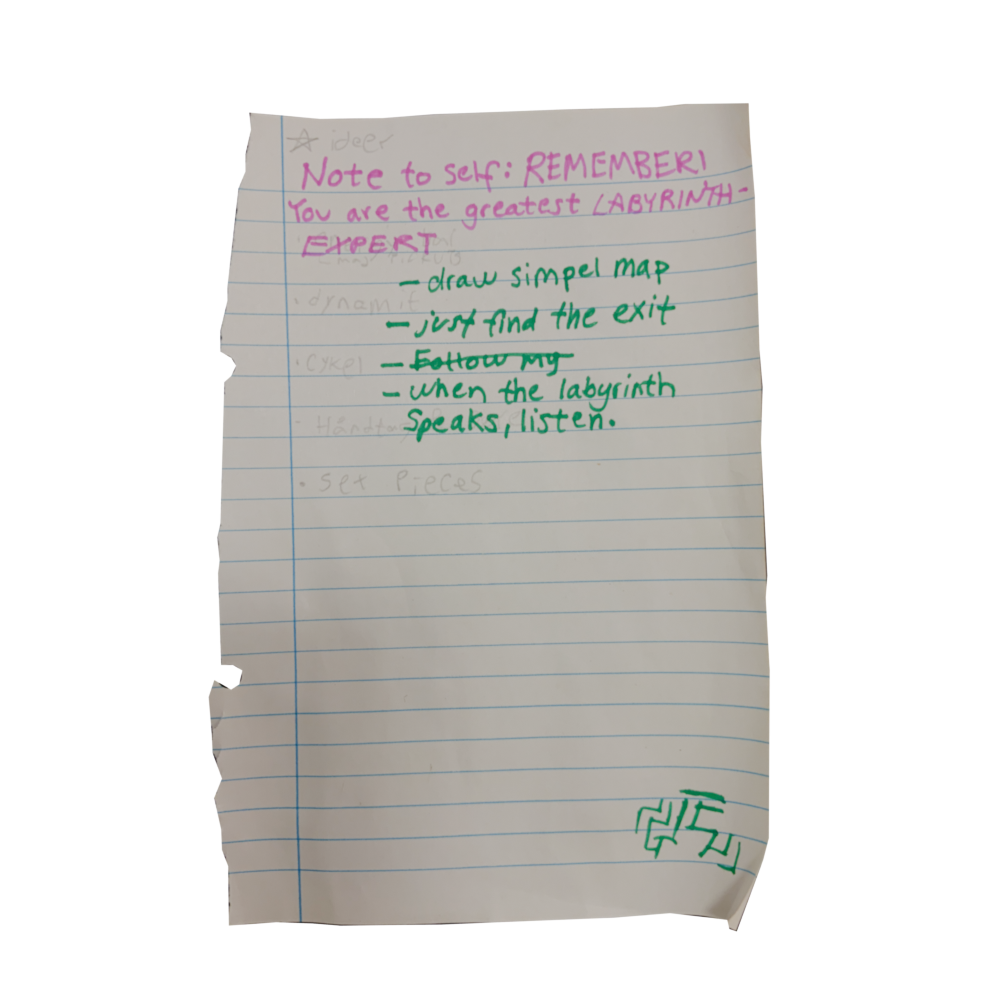 ☆ ideer
Note to self: REMEMBER!
You are the greatest LABYRINTH-
EXPERT
- draw simpel map
• dynamit
- just find the exit
• Cykel
- Follow my
- when the labyrinth
Speaks, listen.
• set pieces